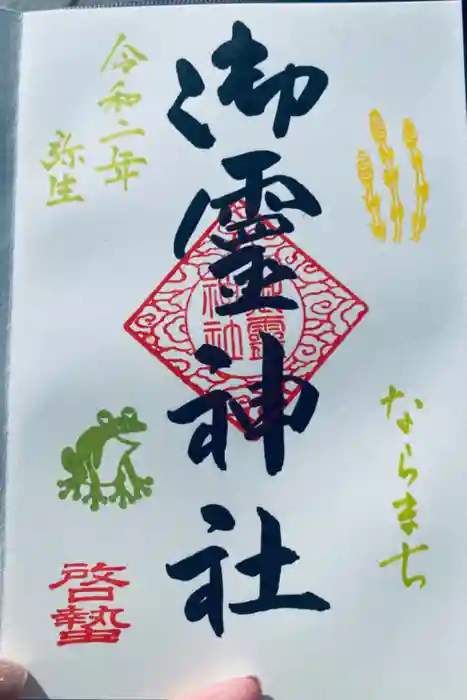 ならまち
御靈神社
御靈神社
令和二年
弥生
啓蟄